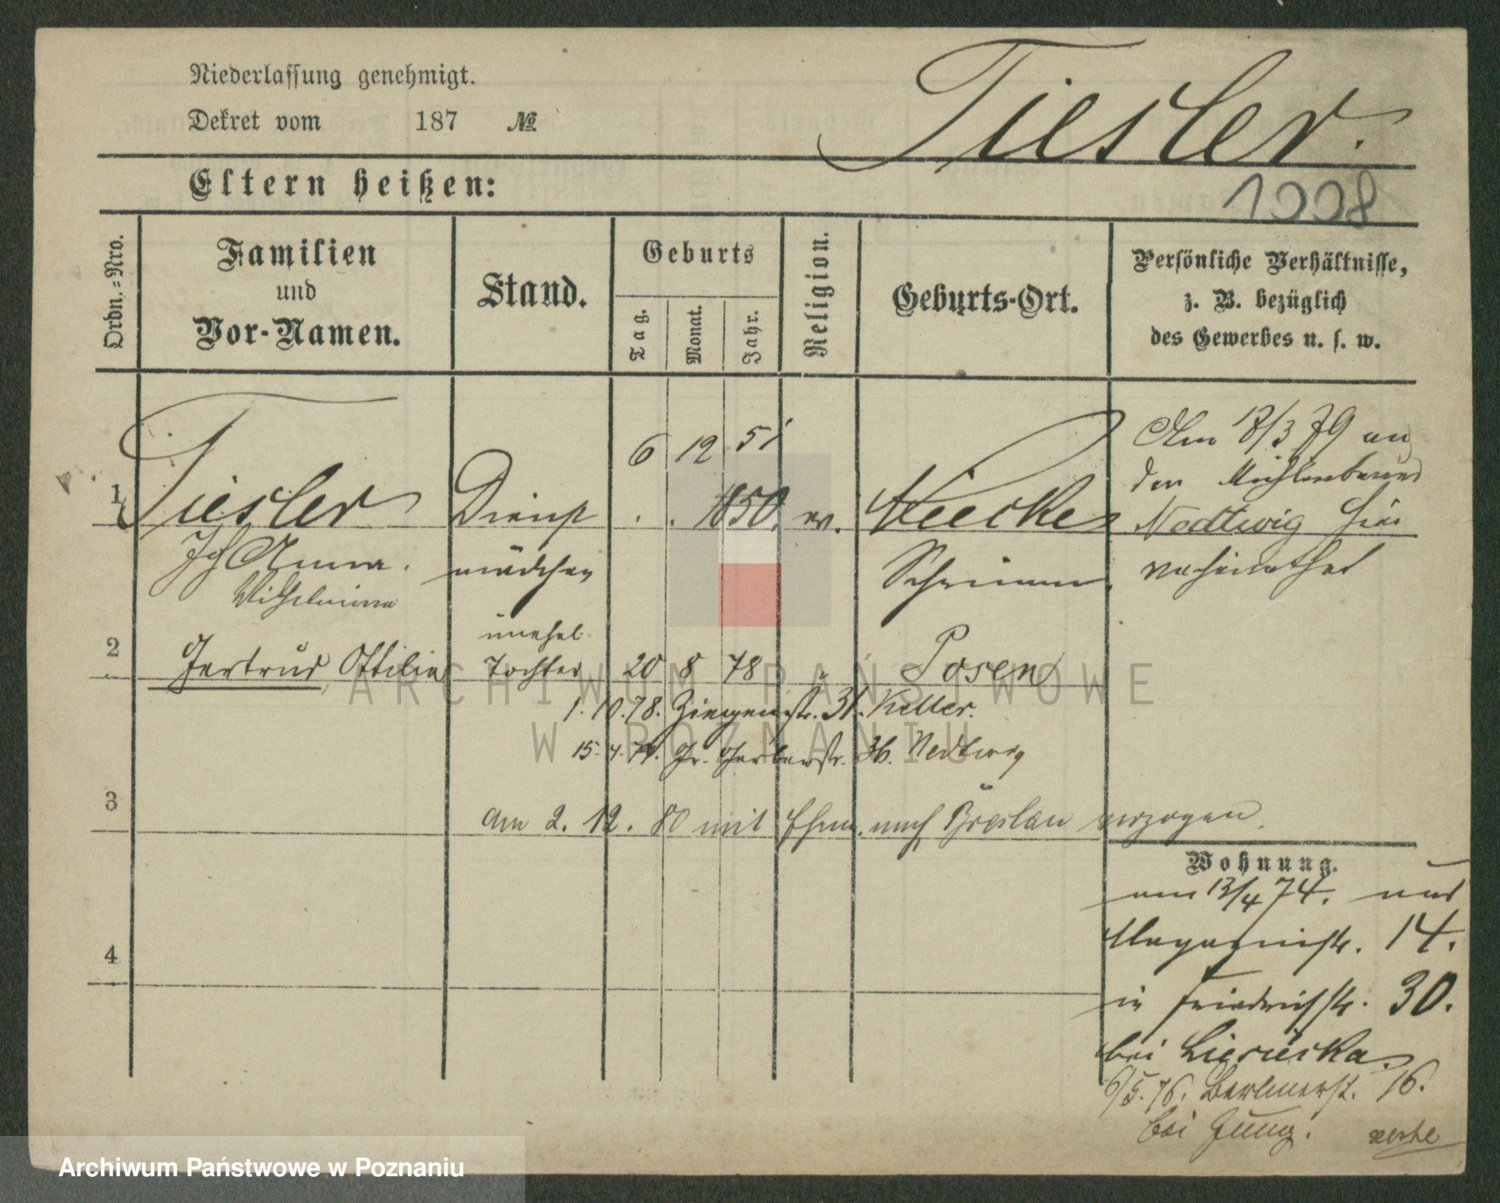 Niederlassung genehmigt.
Dekret vom 187 №
Tiesler.
1008
Eltern heißen:
Ordn.-Nro.
Familien
und
Vor-Namen.
Stand.
Geburts
Tag.
Monat.
Jahr.
Religion.
Geburts-Ort.
Persönliche Verhältnisse,
z. B. bezüglich
des Gewerbes u. s. w.
1
Tiesler
Anna.
Wilhelmina
Dienst
mädchen
6 12 51
1850. ev.
Schrimm.
Am 18/3 79 an
den
Nedtwig hier
verheirathet
2 Gertrud, Ottilie
unehel.
Tochter 20 8 78 Posen
1.10.78. Ziegenstr. 31. Keller.
15.4.79. Gr. Gerberstr. 36. Nedtwig
3
am 2. 12. 80 mit Ehem. nach Breslau verzogen.
Wohnung.
am 13/4 74. aus
Magazinstr. 14.
in Friedrichstr. 30.
bei
6/5.76. Berlinerst. 16.
bei Jung.
4
ARCHIWUM PAŃSTWOWE
W POZNANIU
Archiwum Państwowe w Poznaniu